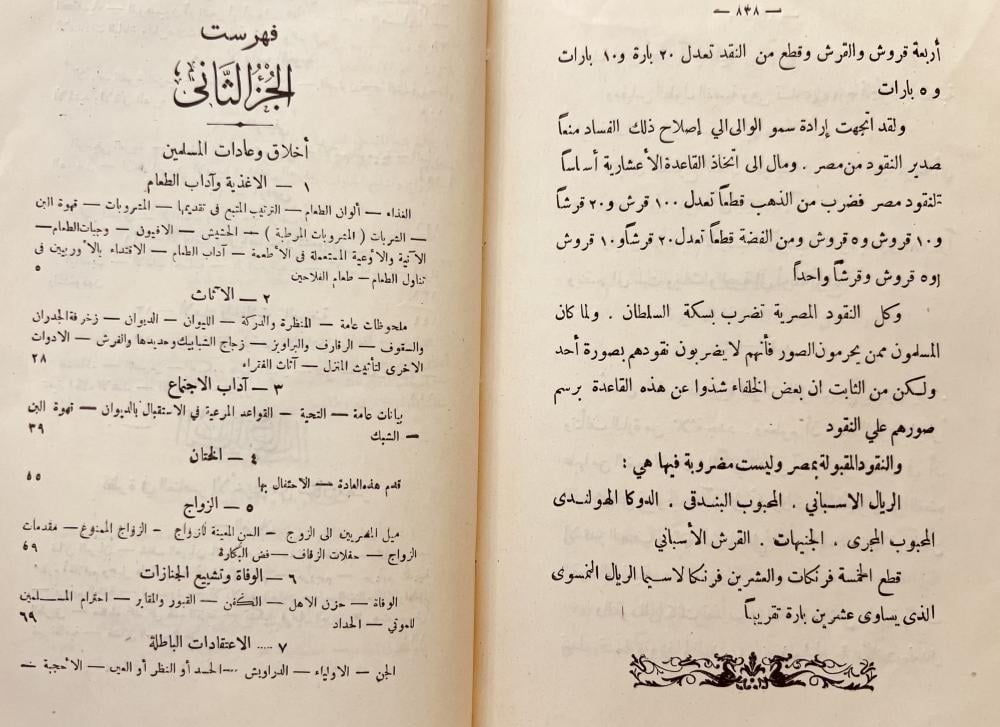 — ٨٣٨ —
أربعة قروش والقرش وقطع من النقد تعدل ٢٠ بارة و١٠ بارات
و ٥ بارات
ولقد اتجهت إرادة سمو الوالى الي إصلاح ذلك الفساد منعاً
صدير النقود من مصر . ومال الى اتخاذ القاعدة الأعشارية أساساً
لنقود مصر فضرب من الذهب قطعاً تعدل ١٠٠ قرش و٢٠ قرشاً
و١٠ قروش و٥ قروش ومن الفضة قطعاً تعدل ٢٠ قرشاً و١٠ قروش
و٥ قروش وقرشاً واحداً
وكل النقود المصرية تضرب بسكة السلطان . ولما كان
المسلمون ممن يحرمون الصور فأنهم لا يضربون نقودهم بصورة أحد
ولكن من الثابت ان بعض الخلفاء شذوا عن هذه القاعدة برسم
صورهم علي النقود
والنقود المقبولة بمصر وليست مضروبة فيها هي :
الريال الاسباني . المحبوب البندقى . الدوكا الهولندى
المحبوب المجرى . الجنيهات . القرش الأسباني
قطع الخمسة فرنكات والعشرين فرنكا لاسيما الريال النمسوى
الذى يساوى عشرين بارة تقريباً
فهرست
الجزء الثانى
أخلاق وعادات المسلمين
١ — الاغذية وآداب الطعام
الغذاء — ألوان الطعام — الترتيب المتبع فى تقديمها — المشروبات — قهوة البن
— الشربات ( المشروبات المرطبة ) — الحشيش — الافيون — وجبات الطعام —
الآنية والأوعية المستعملة فى الأطعمة — آداب الطعام — الاقتداء بالأوربيين فى
تناول الطعام — طعام الفلاحين ٥
٢ — الاثاث
ملحوظات عامة — المنظرة والدركة — الليوان — الديوان — زخرفة الجدران
والسقوف — الرفارف والبراويز — زجاج الشبابيك وحديدها والفرش — الادوات
الاخرى لتأثيث المنزل — آثاث الفقراء ٢٨
٣ — آداب الاجتماع
بيانات عامة — التحية — القواعد المرعية في الاستقبال بالديوان — قهوة البن
— الشبك ٣٩
٤ — الختان
قدم هذه العادة — الاحتفال بها ٥٥
٥ — الزواج
ميل المصريين الى الزوج — السن المعينة للزواج — الزواج الممنوع — مقدمات
الزواج — حفلات الزفاف — فض البكارة ٥٩
٦ — الوفاة وتشييع الجنازات
الوفاة — حزن الاهل — الكفن — القبور والمقابر — احترام المسلمين
للموتي — الحداد ٦٩
٧ ..... الاعتقادات الباطلة
الجن — الاولياء — الدراويش — الحسد أو النظر أو العين — الأحجبة —